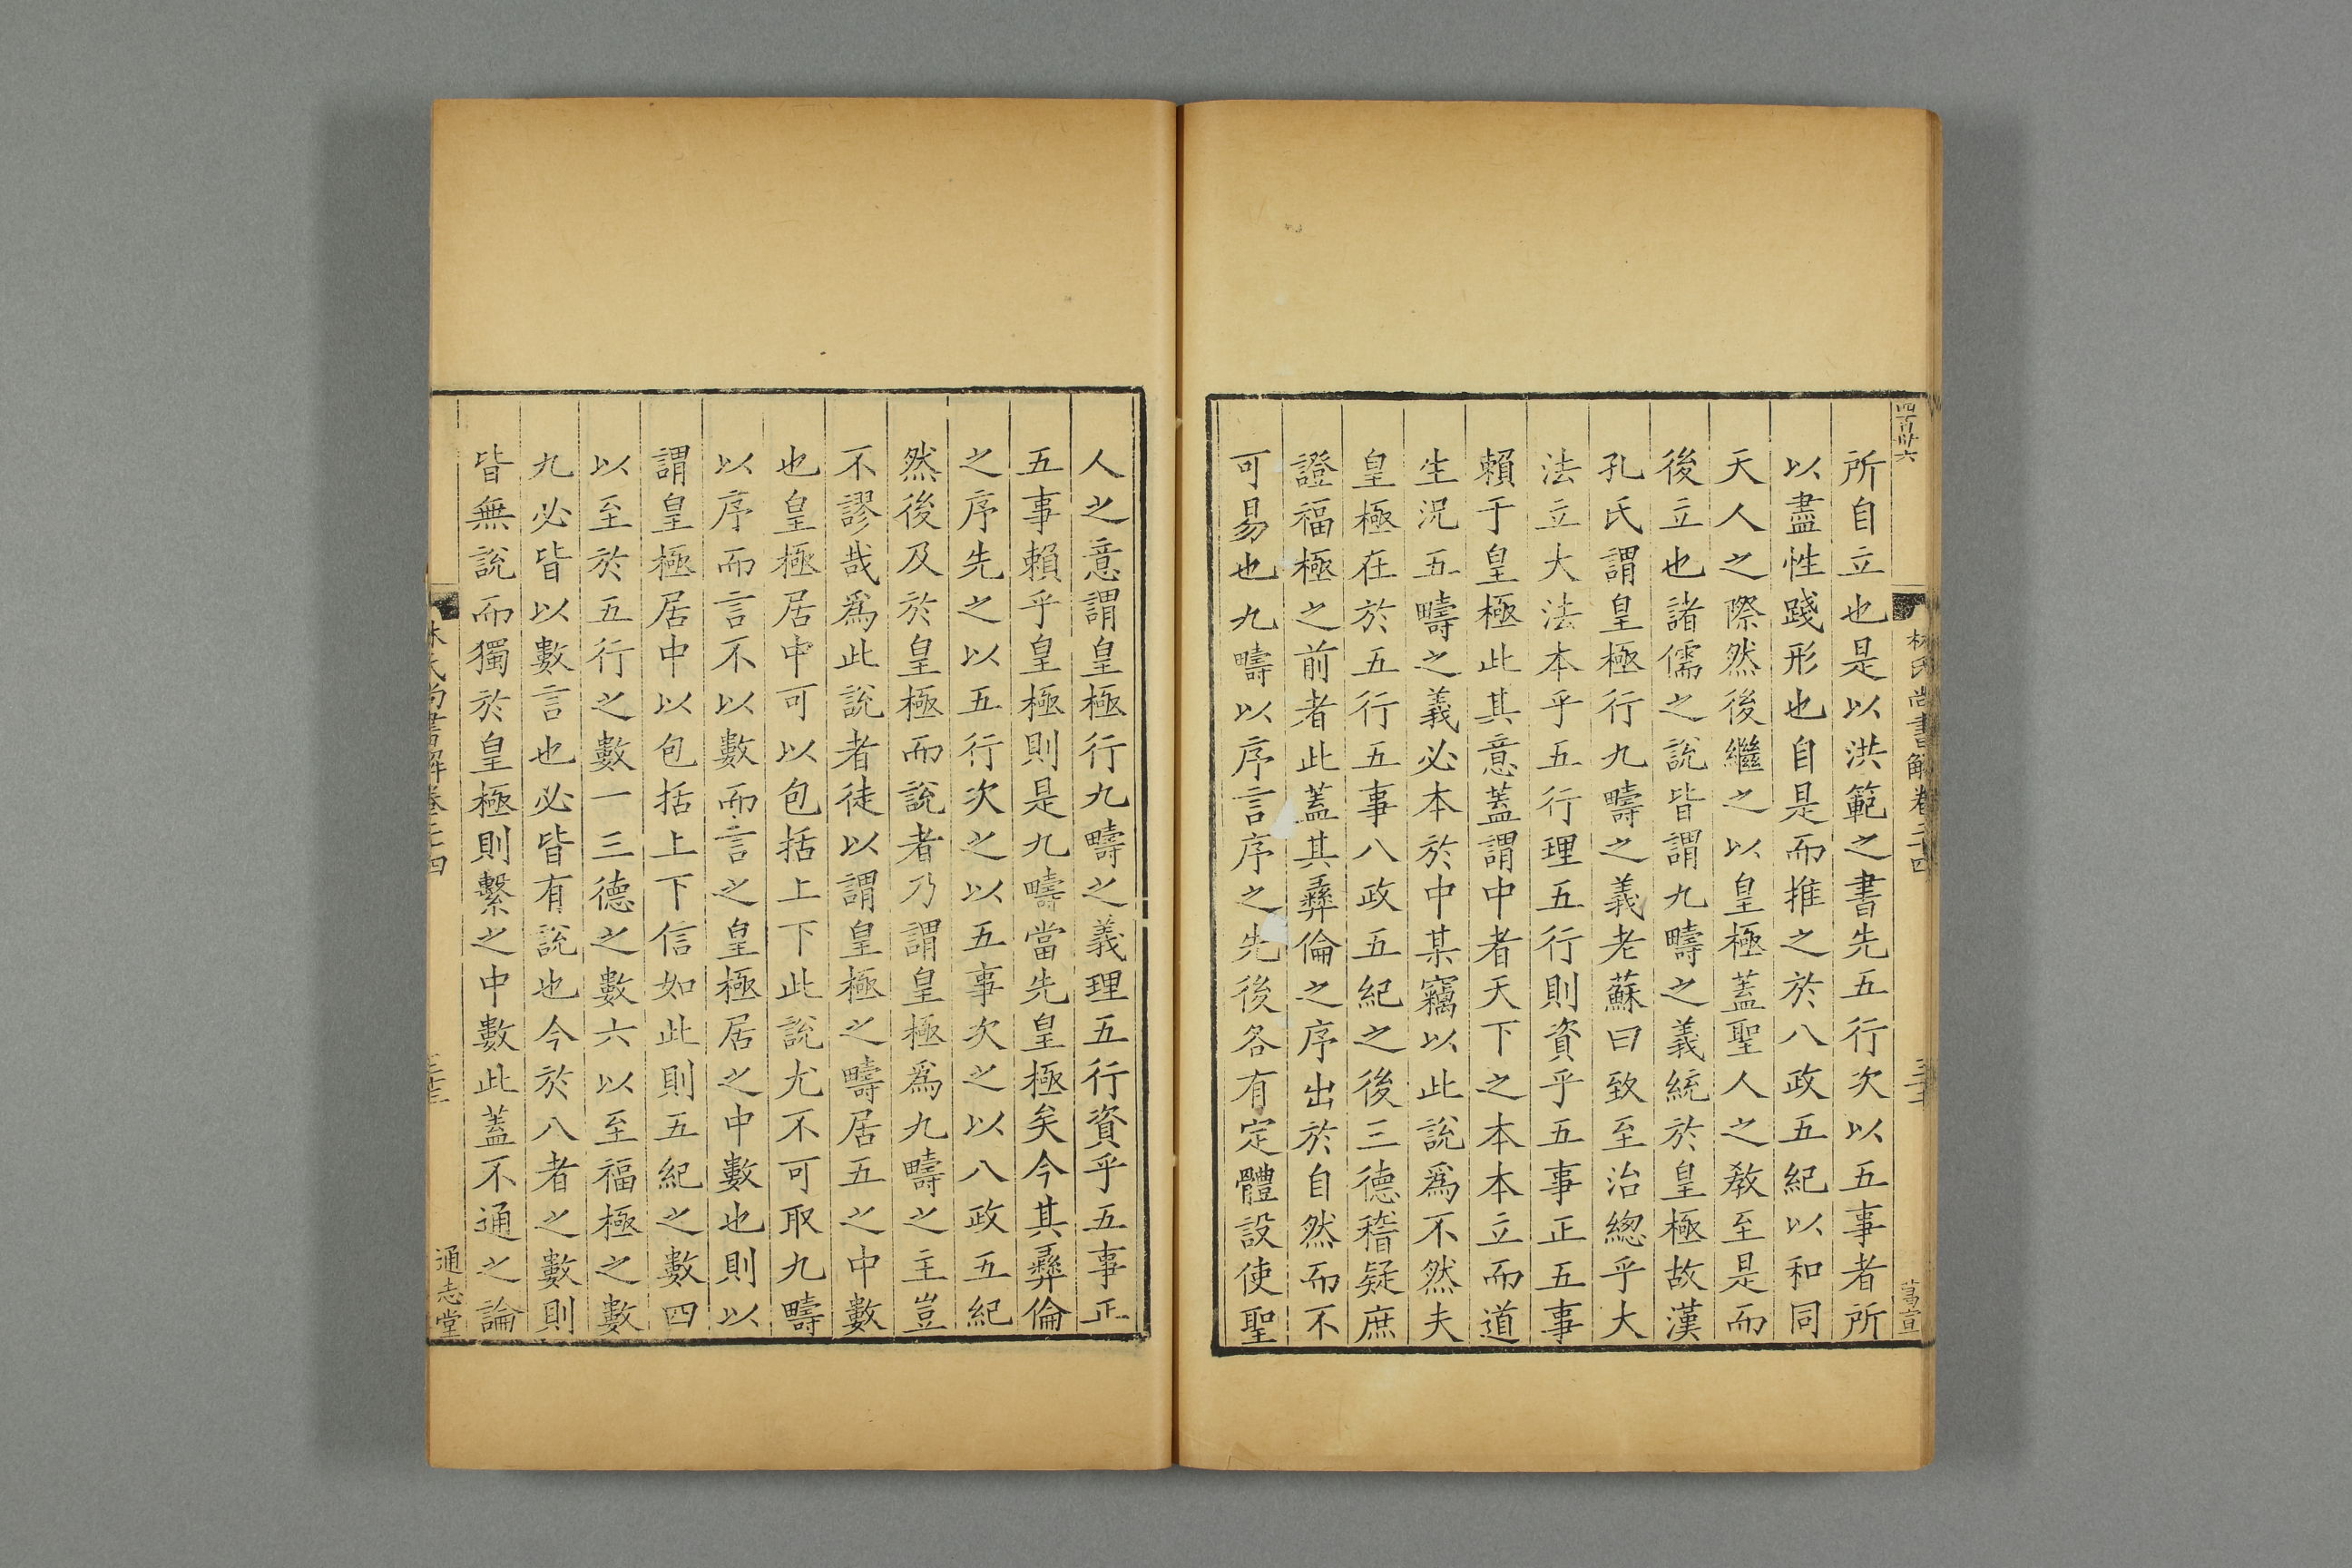 四百卅六
林氏尚書解卷二十四
葛宣
所自立也是以洪範之書先五行次以五事者所
以盡性踐形也自是而推之於八政五紀以和同
天人之際然後繼之以皇極蓋聖人之教至是而
後立也諸儒之說皆謂九疇之義統於皇極故漢
孔氏謂皇極行九疇之義老蘇曰致至治總乎大
法立大法本乎五行理五行則資乎五事正五事
賴于皇極此其意蓋謂中者天下之本本立而道
生況五疇之義必本於中某竊以此說爲不然夫
皇極在於五行五事八政五紀之後三德稽疑庶
證福極之前者此蓋其彝倫之序出於自然而不
可易也九疇以序言序之先後各有定體設使聖
人之意謂皇極行九疇之義理五行資乎五事正
五事賴乎皇極則是九疇當先皇極矣今其彝倫
之序先之以五行次之以五事次之以八政五紀
然後及於皇極而說者乃謂皇極爲九疇之主豈
不謬哉爲此說者徒以謂皇極之疇居五之中數
也皇極居中可以包括上下此說尤不可取九疇
以序而言不以數而言之皇極居之中數也則以
謂皇極居中以包括上下信如此則五紀之數四
以至於五行之數一三德之數六以至福極之數
九必皆以數言也必皆有說也今於八者之數則
皆無說而獨於皇極則繫之中數此蓋不通之論
林氏尚書解卷二十四
通志堂